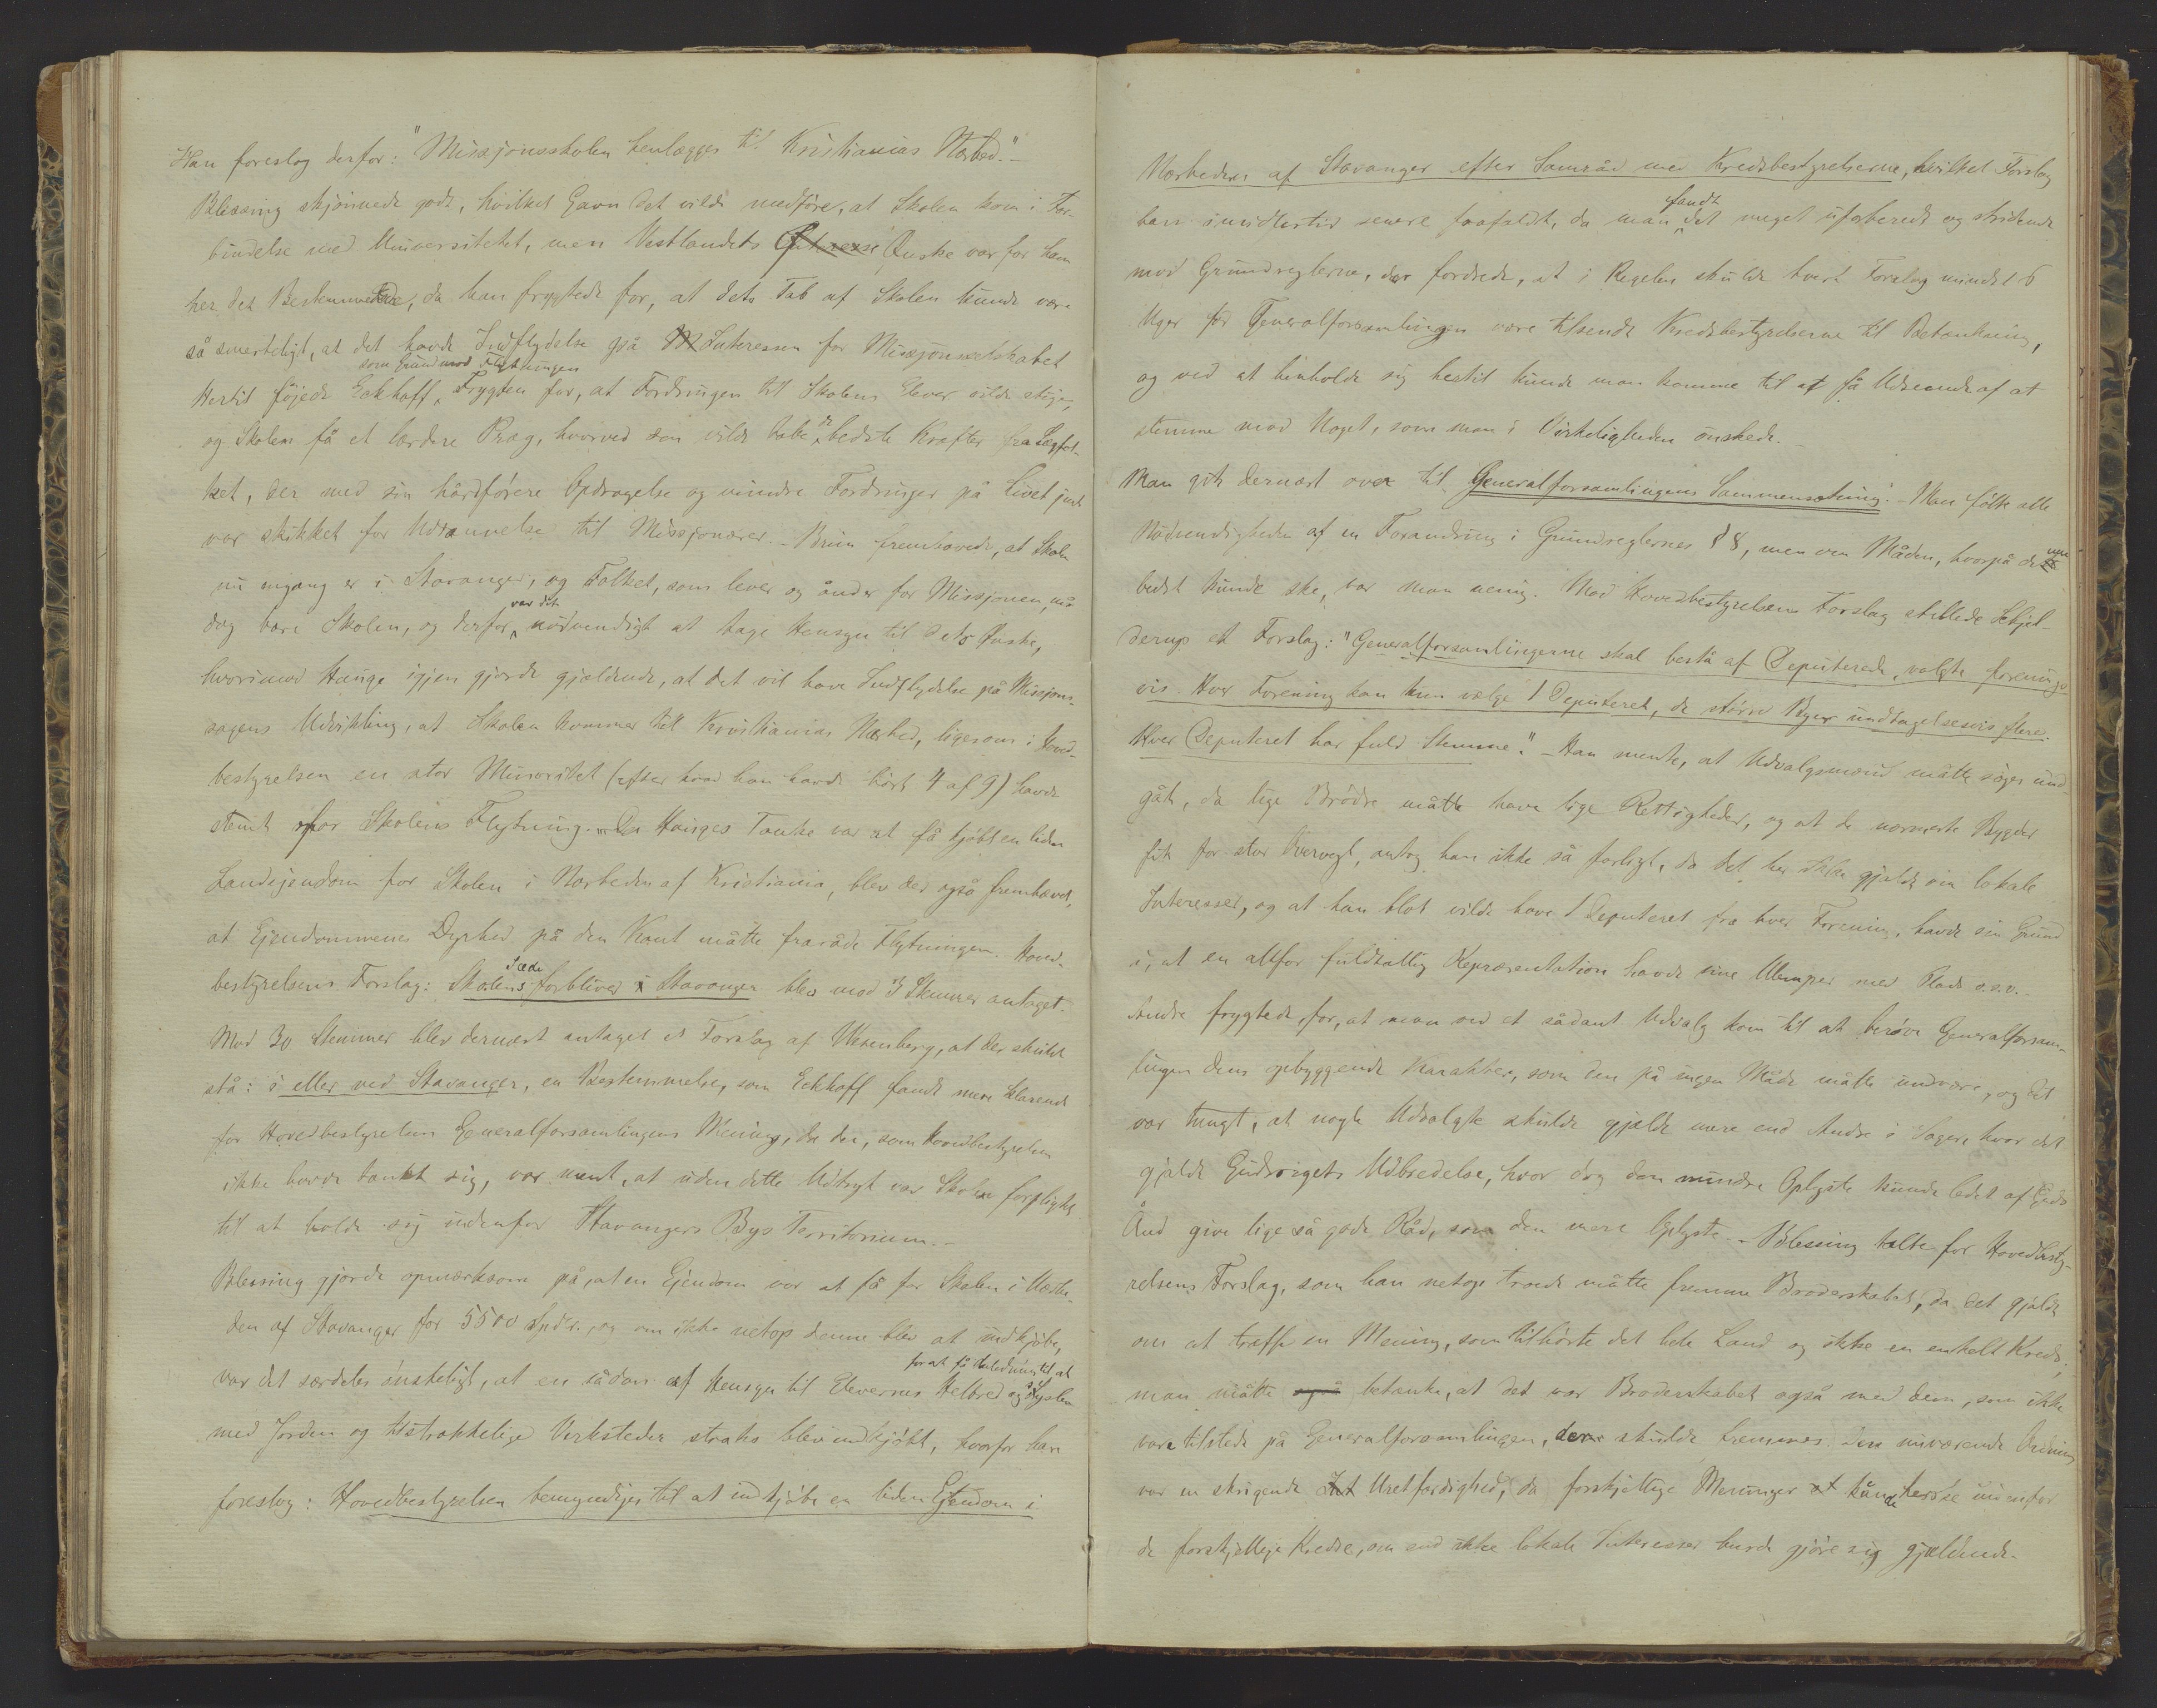 Han foreslog derfor: "Missjonsskolen henlægges til Kristianias Nærhed."-
Blessing skjønnede godt, hvilket Gavn det vilde medføre, at Skolen kom i For-
bindelse med Universitetet, men Vestlandets Ønske var for ham
her det Bestemmende, da han frygtede for, at dets Tab af Skolen kunde være
så smerteligt, at det havde Indflydelse på Interessen for Missjonsselskabet
som Grund mod Flytningen
Hertil føjede Eckhoff Frygten for, at Fordringen til Skolens Elever vilde stige,
og Skolen få et lærdere Præg, hvorved den vilde tabe de bedste Kræfter fra Lægfol-
ket, der med sin hårdførere Opdragelse og mindre Fordringer på Livet just
var skikket for Uddannelse til Missjonærer. - Brun fremhævede, at Skolen
nu engang er i Stavanger, og Folket, som lever og ånder for Missjonen, må
dog bære Skolen, og derfor var det nødvendigt at tage Hensyn til dets Ønske,
hvorimod Hauge igjen gjorde gjældende, at det vil have Indflydelse på Missjons-
sagens Udvikling, at Skolen kommer til Kristianias Nærhed, ligesom i Hoved-
bestyrelsen en stor Minoritet (efter hvad han havde hørt 4 af 9) havde
stemt for Skolens Flytning. Da Hauges Tanke var at få kjøbt en liden
Landejendom for Skolen i Nærheden af Kristiania, blev det også fremhævet,
at Ejendommenes Dyrhed på den Kant måtte fraråde Flytningen. Hoved-
bestyrelsens Forslag: Skolens Sæde forbliver i Stavanger blev mod 3 Stemmer antaget.
Mod 30 Stemmer blev dernæst antaget et Forslag af Wexenberg, at der skulde
stå: i eller ved Stavanger, en Bestemmelse, som Eckhoff fandt mere klarende
for Hovedbestyrelsen Generalforsamlingens Mening, da der, som Hovedbestyrelsen
ikke havde tænkt sig, var ment, at uden dette Udtryk var Skolen forpligtet
til at holde sig indenfor Stavangers Bys Territorium.-
Blessing gjorde opmærksom på, at en Ejendom var at få for Skolen i Nærhe-
den af Stavanger for 5500 Spdlr., og om ikke netop denne blev at indkjøbe,
var det særdeles ønskeligt, at en sådan af Hensyn til Elevernes Helbred og for at få Anledning til at sysle
med Jorden og tilstrækkelige Verksteder straks blev indkjøbt, hvorfor han
foreslog: Hovedbestyrelsen bemyndiges til at indkjøbe en liden Ejendom i
Nærheden af Stavanger efter Samråd med Kredsbestyrelserne, hvilket Forslag
han imidlertid senere frafaldt, da man fandt det meget uforberedt og stridende
mod Grundreglerne, der fordrede, at i Regelen skulde hvert Forslag mindst 6
Uger før Generalforsamlingen være tilsendt Kredsbestyrelserne til Betænkning,
og ved at henholde sig hertil kunde man komme til at få Udseende af at
stemme mod Noget, som man i Virkeligheden ønskede. -
Man gik dernæst over til Generalforsamlingens Sammensætning. - Man følte alle
Nødvendigheden af en Forandring i Grundreglernes § 8, men om Måden, hvorpå denne
bedst kunde ske, var man uenig. Mod Hovedbestyrelsens Forslag stillede Schjel-
derup et Forslag: "Generalforsamlingerne skal bestå af Deputerede, valgte forenings-
vis. Hver Forening kan kun vælge 1 Deputeret, de større Byer undtagelsesvis flere.
Hver Deputeret har fuld Stemme." - Han mente, at Udvalgsmænd måtte søges und-
gåt, da lige Brødre måtte have lige Rettigheder, og at de nærmeste Bygder
fik for stor Overvegt, antog han ikke så farligt, da det her ikke gjaldt om lokale
Interesser, og at han blot vilde have 1 Deputeret fra hver Forening, havde sin Grund
i, at en altfor fuldtallig Repræsentation havde sine Ulemper med Plads o.s.v.-
Andre frygtede for, at man ved et sådant Udvalg kom til at berøve Generalforsam-
lingen dens opbyggende Karakter, som den på ingen Måde måtte undvære, og det
var tungt, at nogle Udvalgte skulde gjælde mere end Andre i Sager, hvor det
gjaldt Gudsrigets Udbredelse, hvor dog den mindre Oplyste kunde ledet af Guds
Ånd give lige så gode Råd, som den mere Oplyste. - Blessing talte for Hovedbesty-
relsens Forslag, som han netop troede måtte fremme Broderskabet, da det gjaldt
om at træffe en Mening, som tilhørte det hele Land og ikke en enkelt Kreds;
man måtte betænke, at det var Broderskabet også med dem, som ikke
vare tilstede på Generalforsamlingen, der skulde fremmes. Den nuværende Ordning
var en skrigende Uretfærdighed, da forskjellige Meninger kunde herske indenfor
de forskjellige Kredse, om end ikke lokale Interesser burde gjøre sig gjældende.